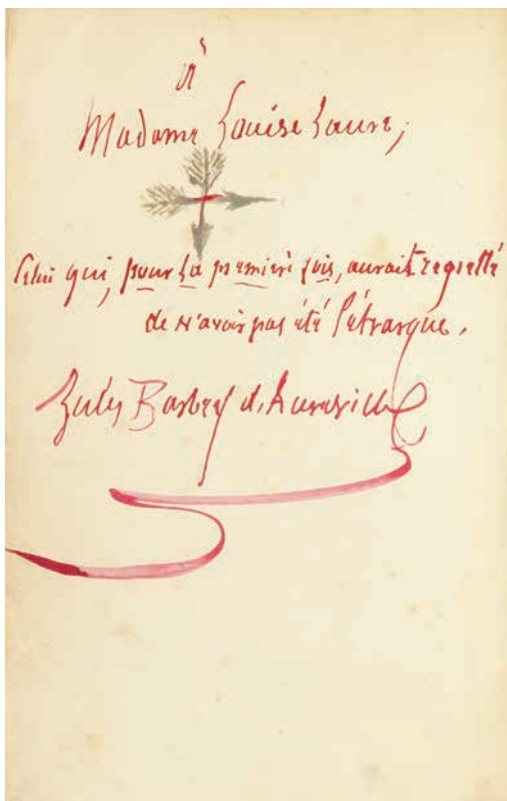 à
Madame Louise Laure;
Celui qui, pour la première fois, aurait regretté
de n'avoir pas été Pétrarque.
Jules Barbey d'Aurevilly